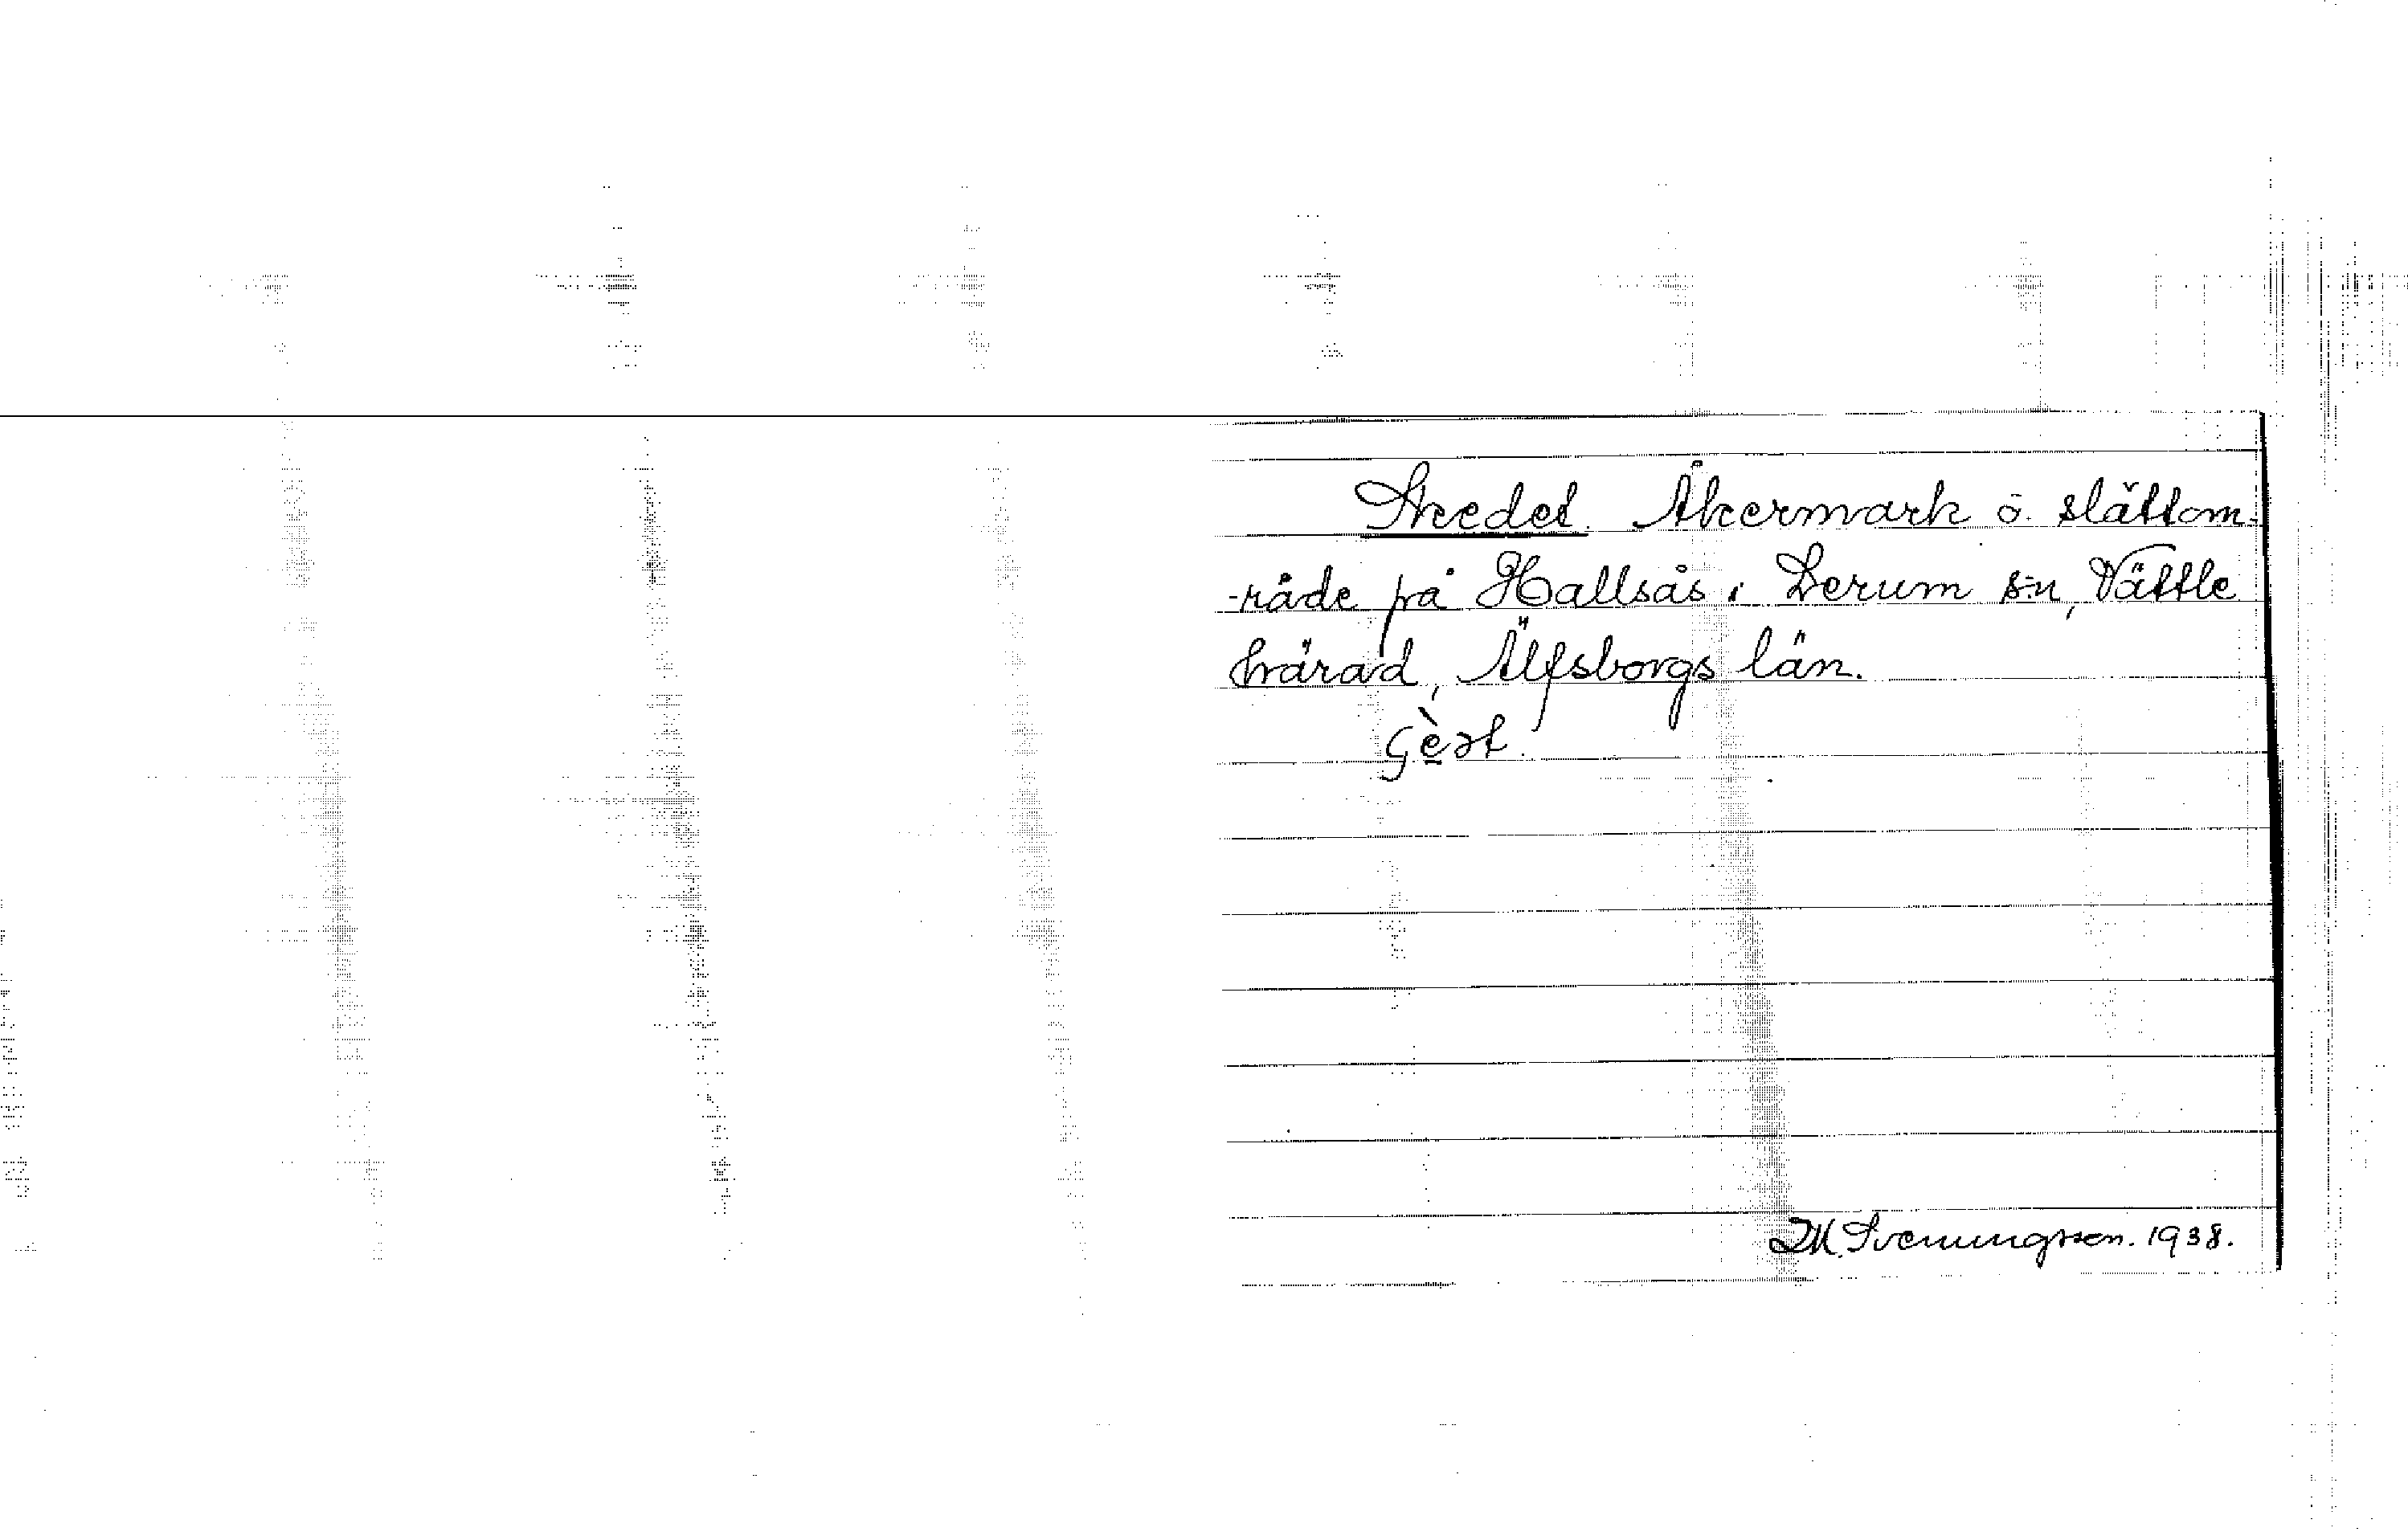 Skeedet. Åkermark o. slättom-
-råde på Hallsås i Lerum s:n, Vättle
härad, Älfsborgs län.
IM. Svenungsson. 1938.